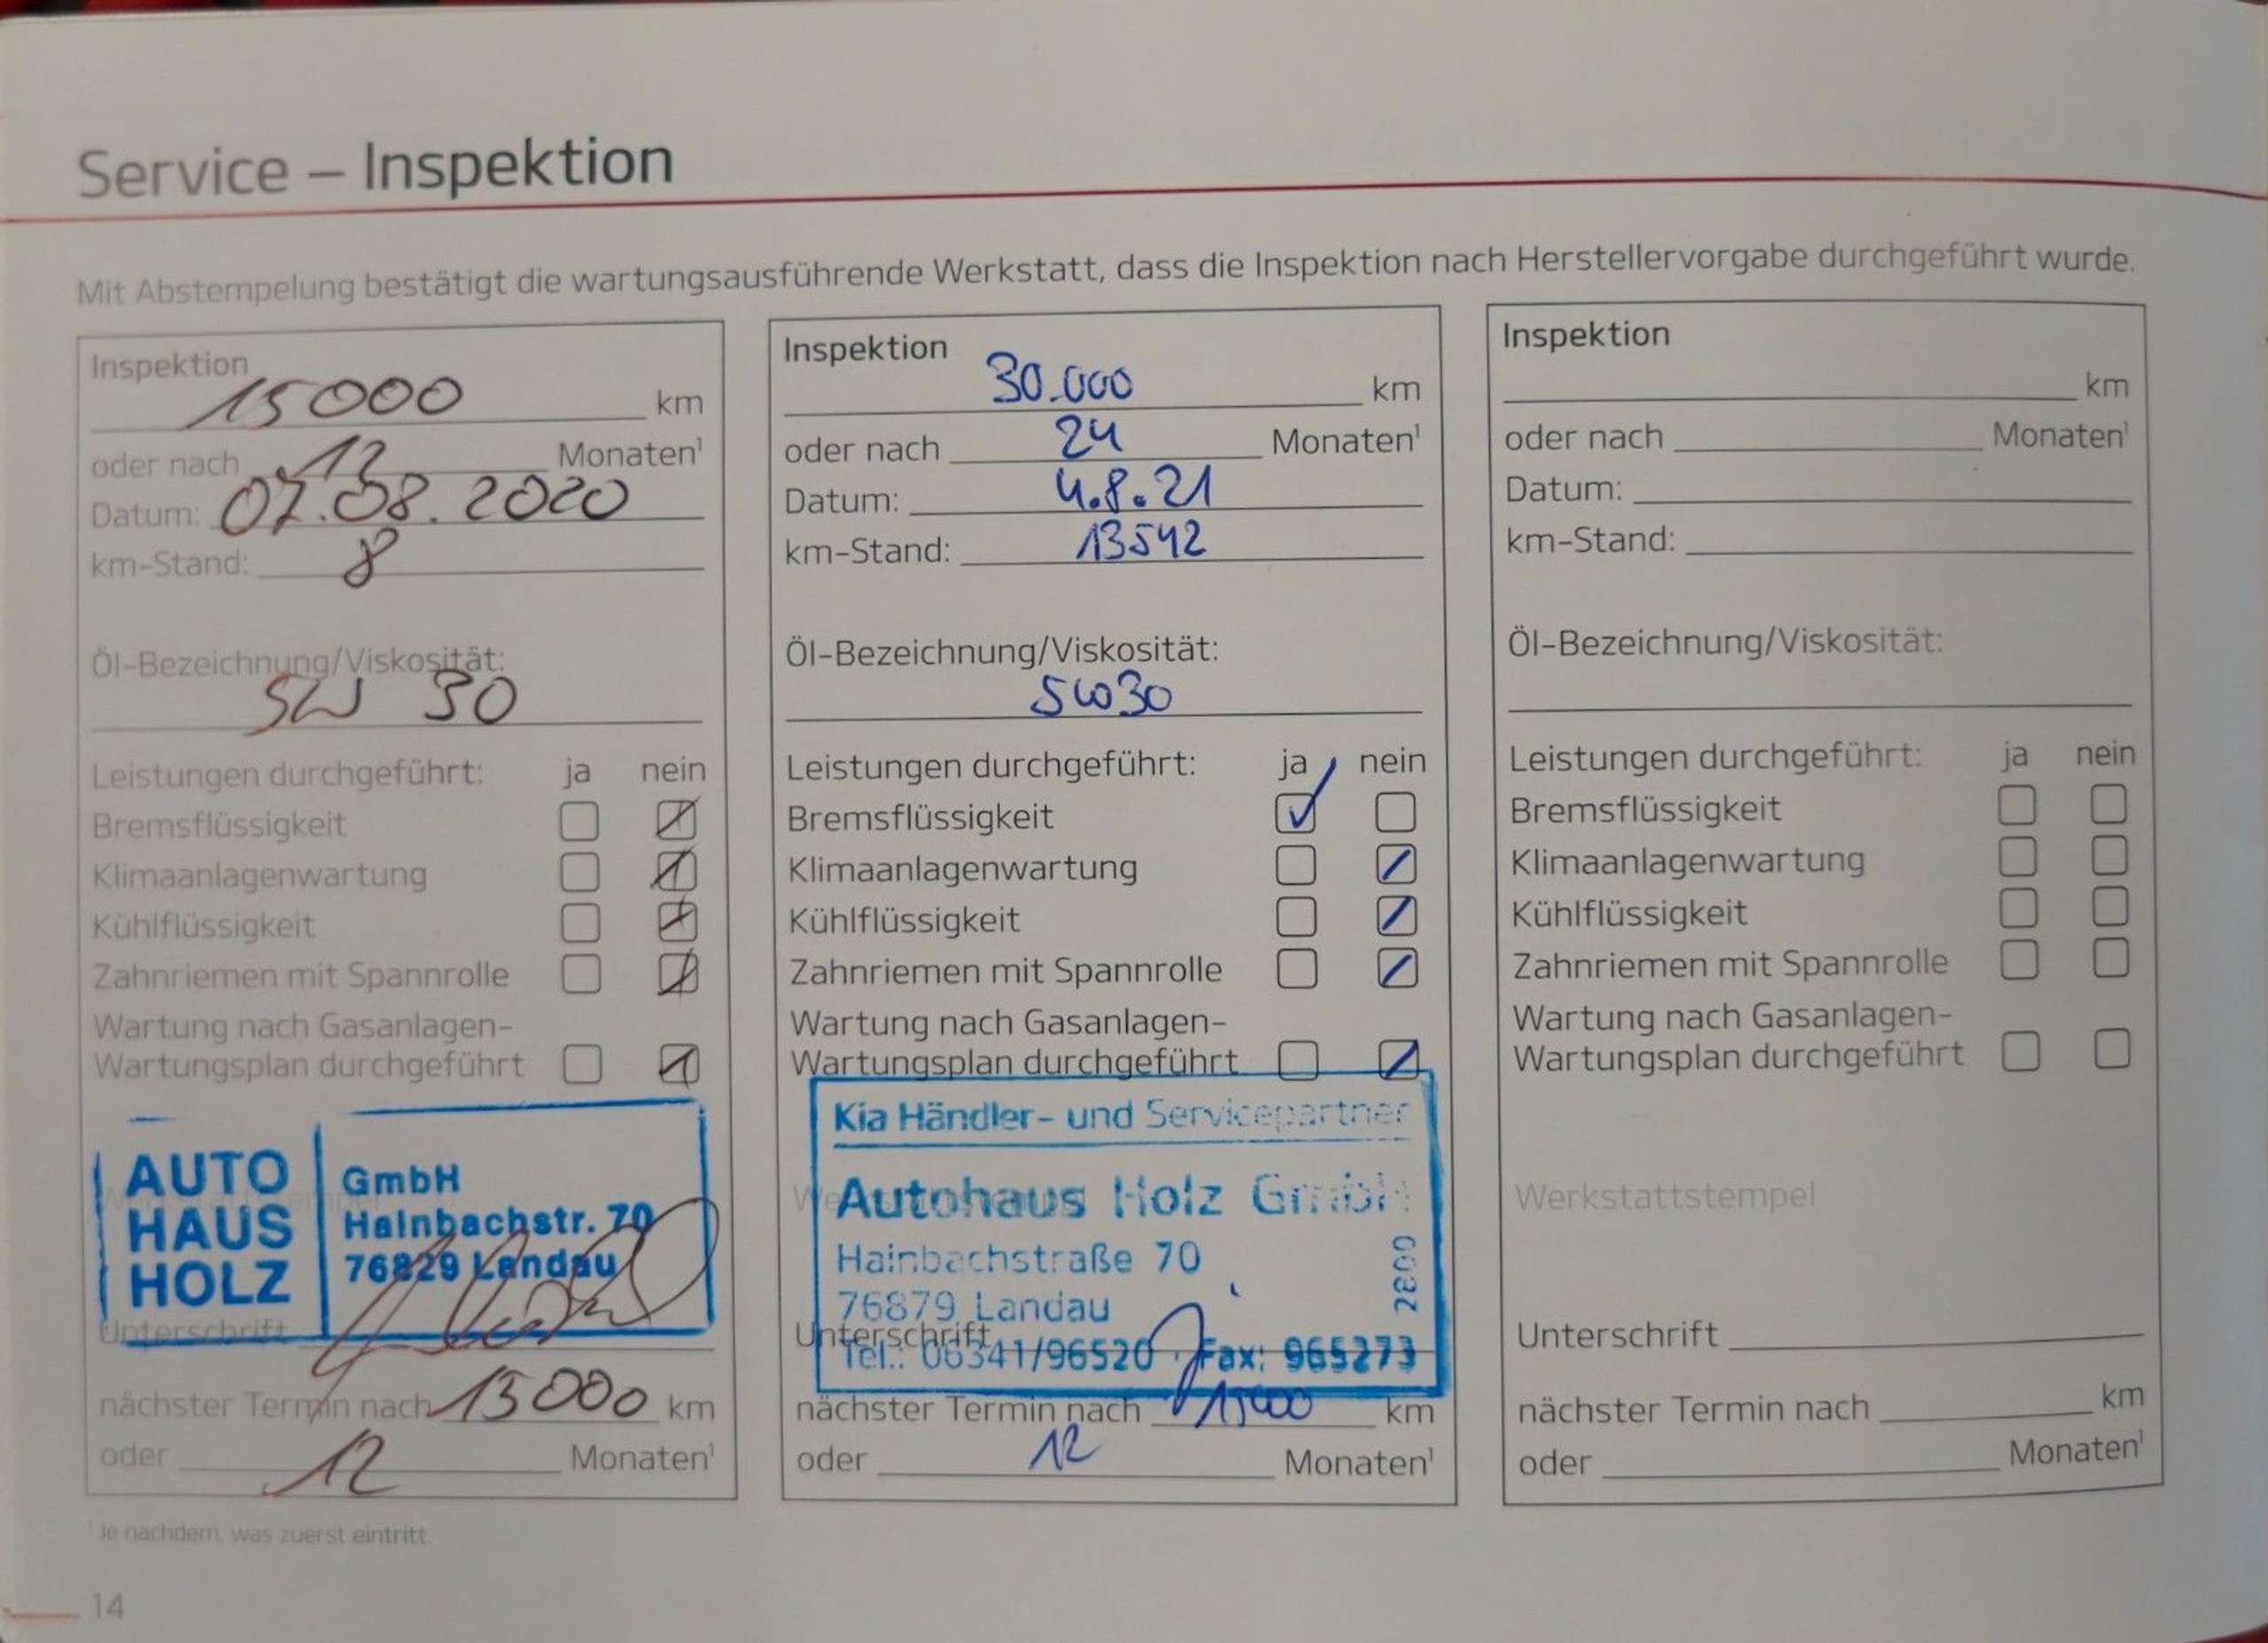 Service – Inspektion
Mit Abstempelung bestätigt die wartungsausführende Werkstatt, dass die Inspektion nach Herstellervorgabe durchgeführt wurde.
Inspektion
15000 km
oder nach 12 Monaten¹
Datum: 07.08.2020
km-Stand: 8
Öl-Bezeichnung/Viskosität:
5W 30
Leistungen durchgeführt: ja nein
Bremsflüssigkeit
Klimaanlagenwartung
Kühlflüssigkeit
Zahnriemen mit Spannrolle
Wartung nach Gasanlagen-
Wartungsplan durchgeführt
AUTO
HAUS
HOLZ
GmbH
Hainbachstr. 70
76829 Landau
Unterschrift
nächster Termin nach 15000 km
oder 12 Monaten¹
Inspektion
30.000 km
oder nach 24 Monaten¹
Datum: 4.8.21
km-Stand: 13542
Öl-Bezeichnung/Viskosität:
5W30
Leistungen durchgeführt: ja nein
Bremsflüssigkeit
Klimaanlagenwartung
Kühlflüssigkeit
Zahnriemen mit Spannrolle
Wartung nach Gasanlagen-
Wartungsplan durchgeführt
Kia Händler- und Servicepartner
Autohaus Holz GmbH
Hainbachstraße 70
76879 Landau
Unterschrift
Tel.: 06341/96520 · Fax: 965273
nächster Termin nach 15000 km
oder 12 Monaten¹
Inspektion
km
oder nach Monaten¹
Datum:
km-Stand:
Öl-Bezeichnung/Viskosität:
Leistungen durchgeführt: ja nein
Bremsflüssigkeit
Klimaanlagenwartung
Kühlflüssigkeit
Zahnriemen mit Spannrolle
Wartung nach Gasanlagen-
Wartungsplan durchgeführt
Werkstattstempel
Unterschrift
nächster Termin nach km
oder Monaten¹
¹ Je nachdem, was zuerst eintritt.
14